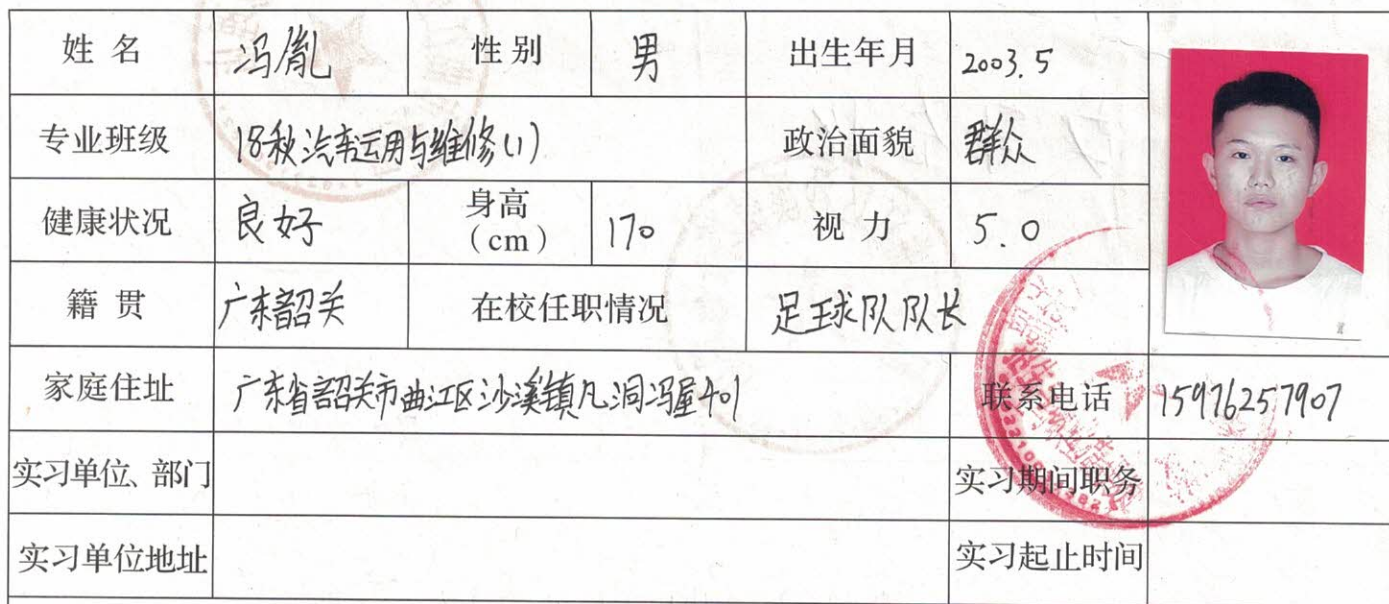 姓名 冯胤 性别 男 出生年月 2003.5
专业班级 18秋汽车运用与维修(1) 政治面貌 群众
健康状况 良好 身高(cm) 170 视力 5.0
籍贯 广东韶关 在校任职情况 足球队队长
家庭住址 广东省韶关市曲江区沙溪镇凡洞冯屋401 联系电话 15976257907
实习单位、部门 实习期间职务
实习单位地址 实习起止时间